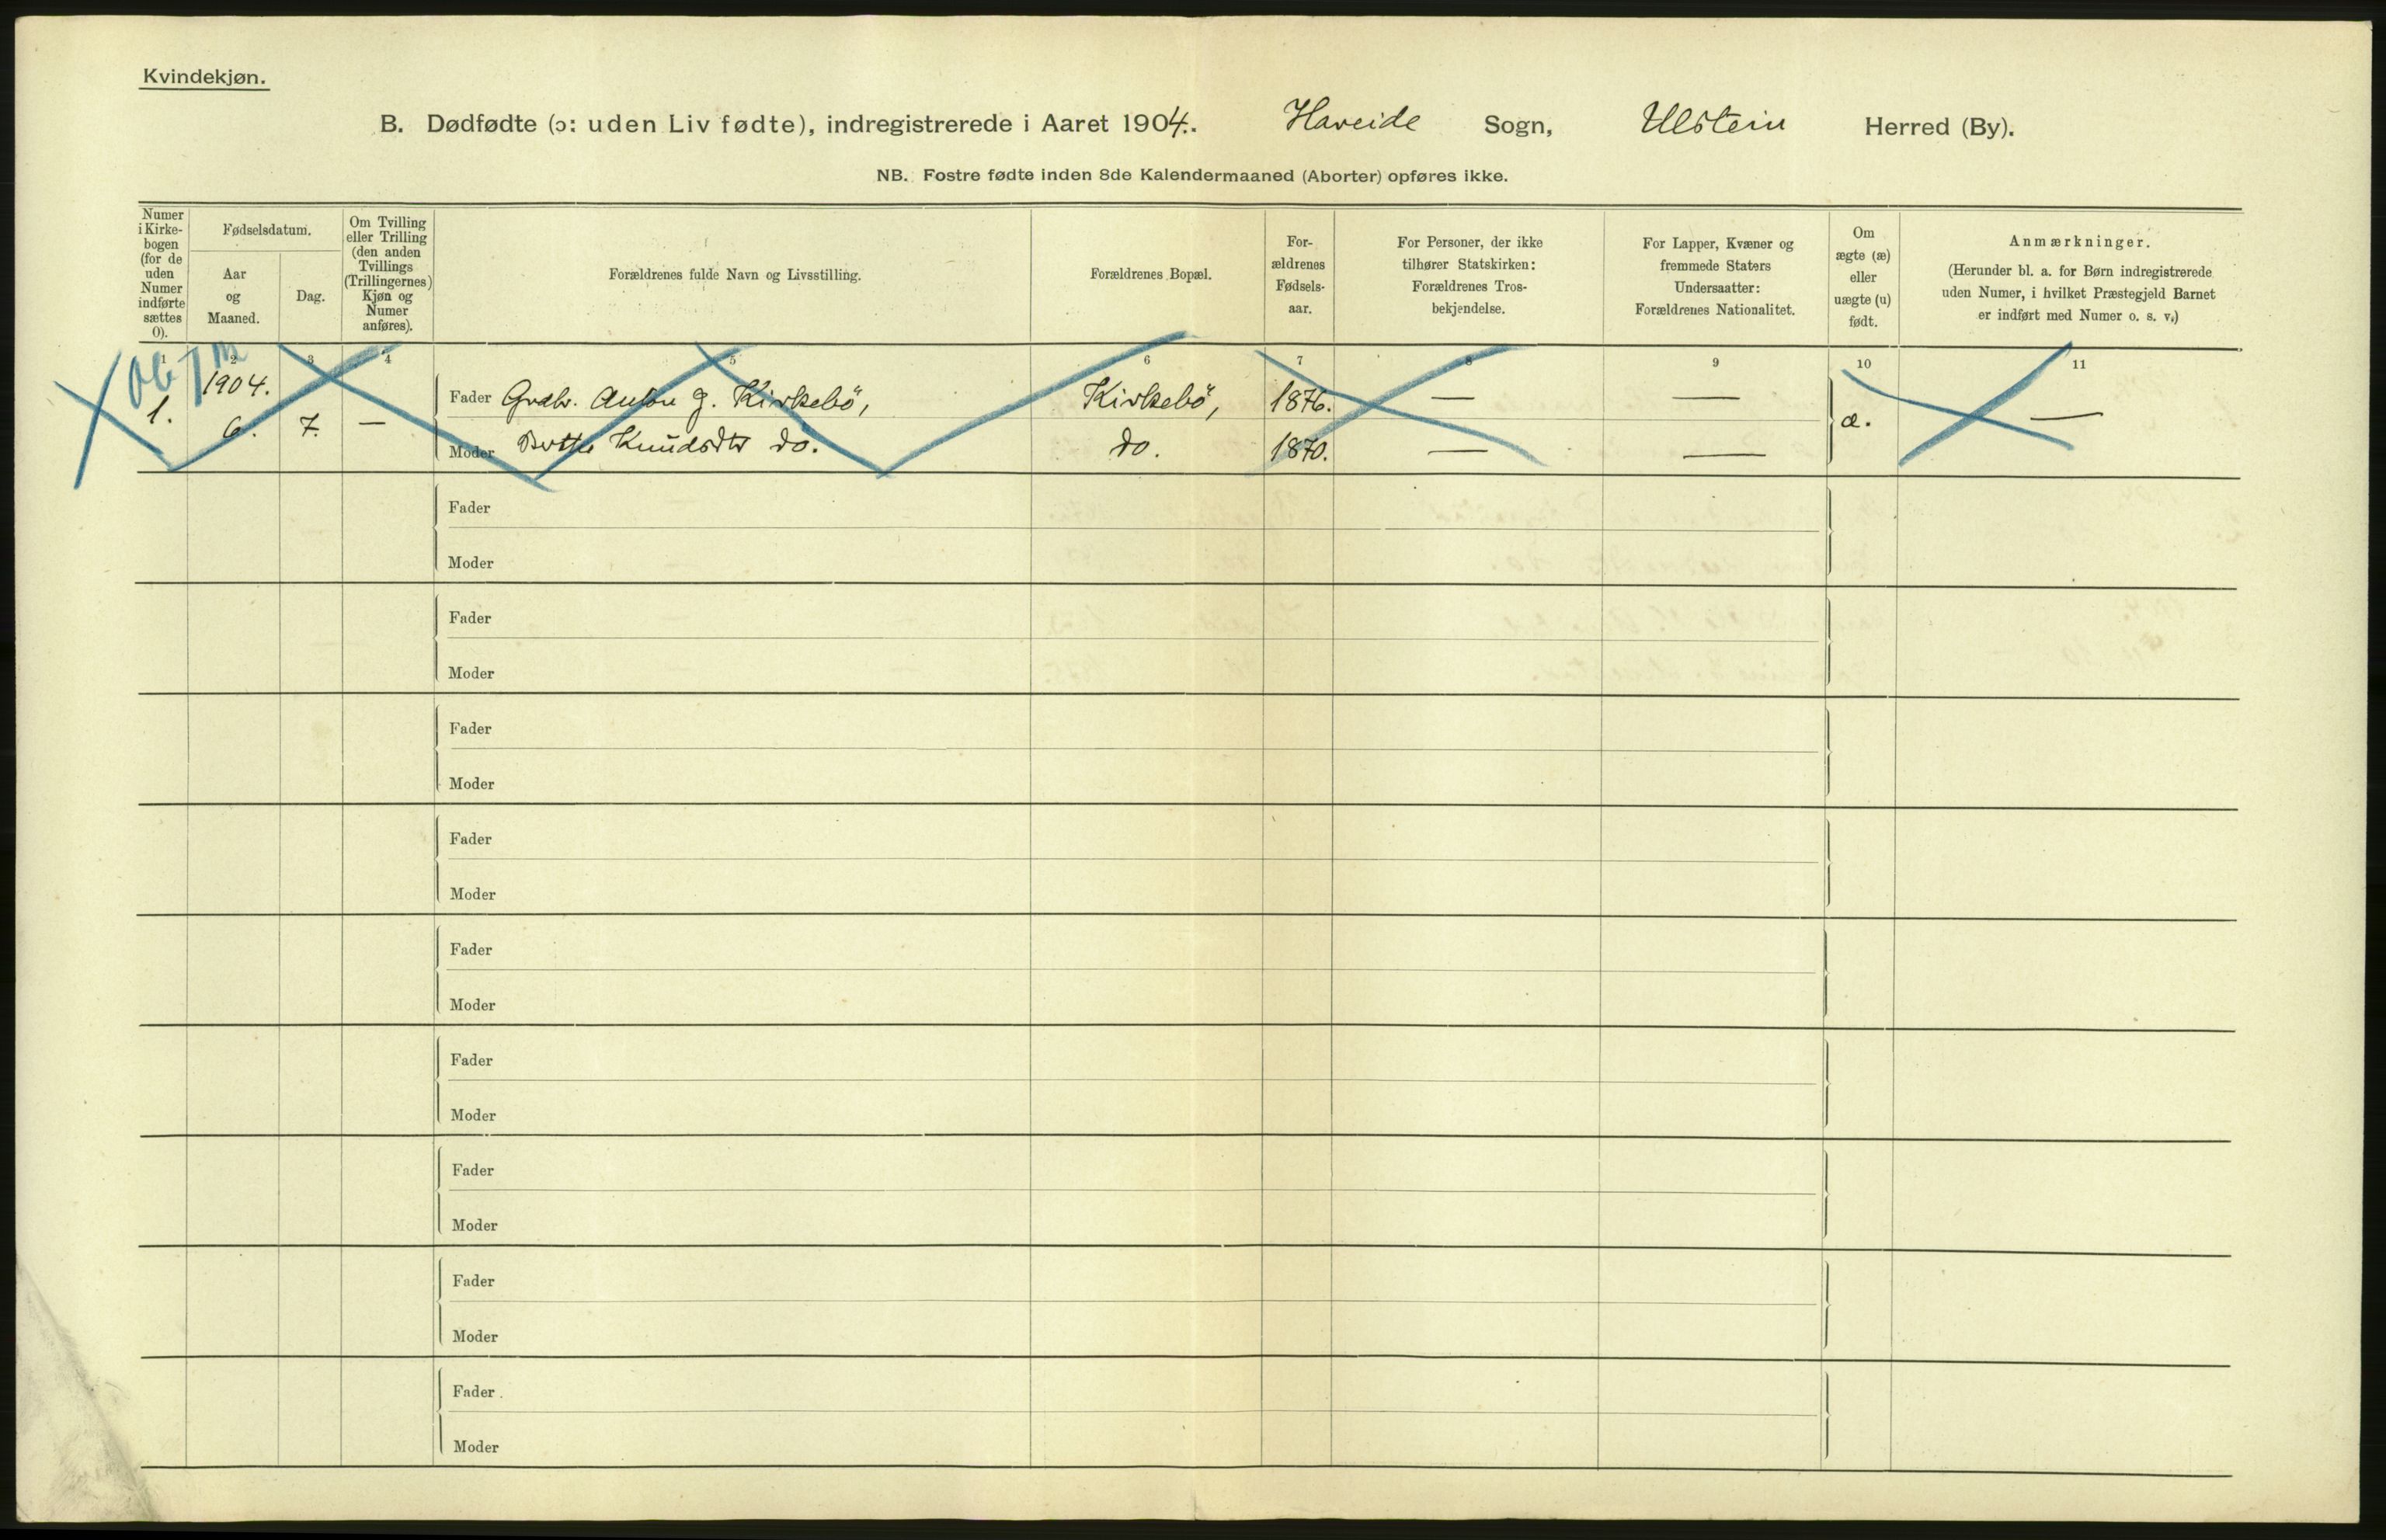 Kvindekjøn.
B. Dødfødte (ɔ: uden Liv fødte), indregistrerede i Aaret 1904. Hareide Sogn, Ulstein Herred (By).
NB. Fostre fødte inden 8de Kalendermaaned (Aborter) opføres ikke.
Numer
i Kirke-
bogen
(for de
uden
Numer
indførte
sættes
0).
Fødselsdatum.
Aar
og
Maaned.
Dag.
Om Tvilling
eller Trilling
(den anden
Tvillings
(Trillingernes)
Kjøn og
Numer
anføres).
Forældrenes fulde Navn og Livsstilling.
Forældrenes Bopæl.
For-
ældrenes
Fødsels-
aar.
For Personer, der ikke
tilhører Statskirken:
Forældrenes Tros-
bekjendelse.
For Lapper, Kvæner og
fremmede Staters
Undersaatter:
Forældrenes Nationalitet.
Om
ægte (æ)
eller
uægte (u)
født.
Anmærkninger.
(Herunder bl. a. for Børn indregistrerede
uden Numer, i hvilket Præstegjeld Barnet
er indført med Numer o. s. v.)
1 2 3 4 5 6 7 8 9 10 11
1904.
1. 6. 7. —
Fader Grdbr. Anton G. Kirkebö, Kirkebö, 1876. — —
Moder Berthe Knudsdtr do. do. 1870. — —
æ. —
Fader
Moder
Fader
Moder
Fader
Moder
Fader
Moder
Fader
Moder
Fader
Moder
Fader
Moder
Fader
Moder
Fader
Moder